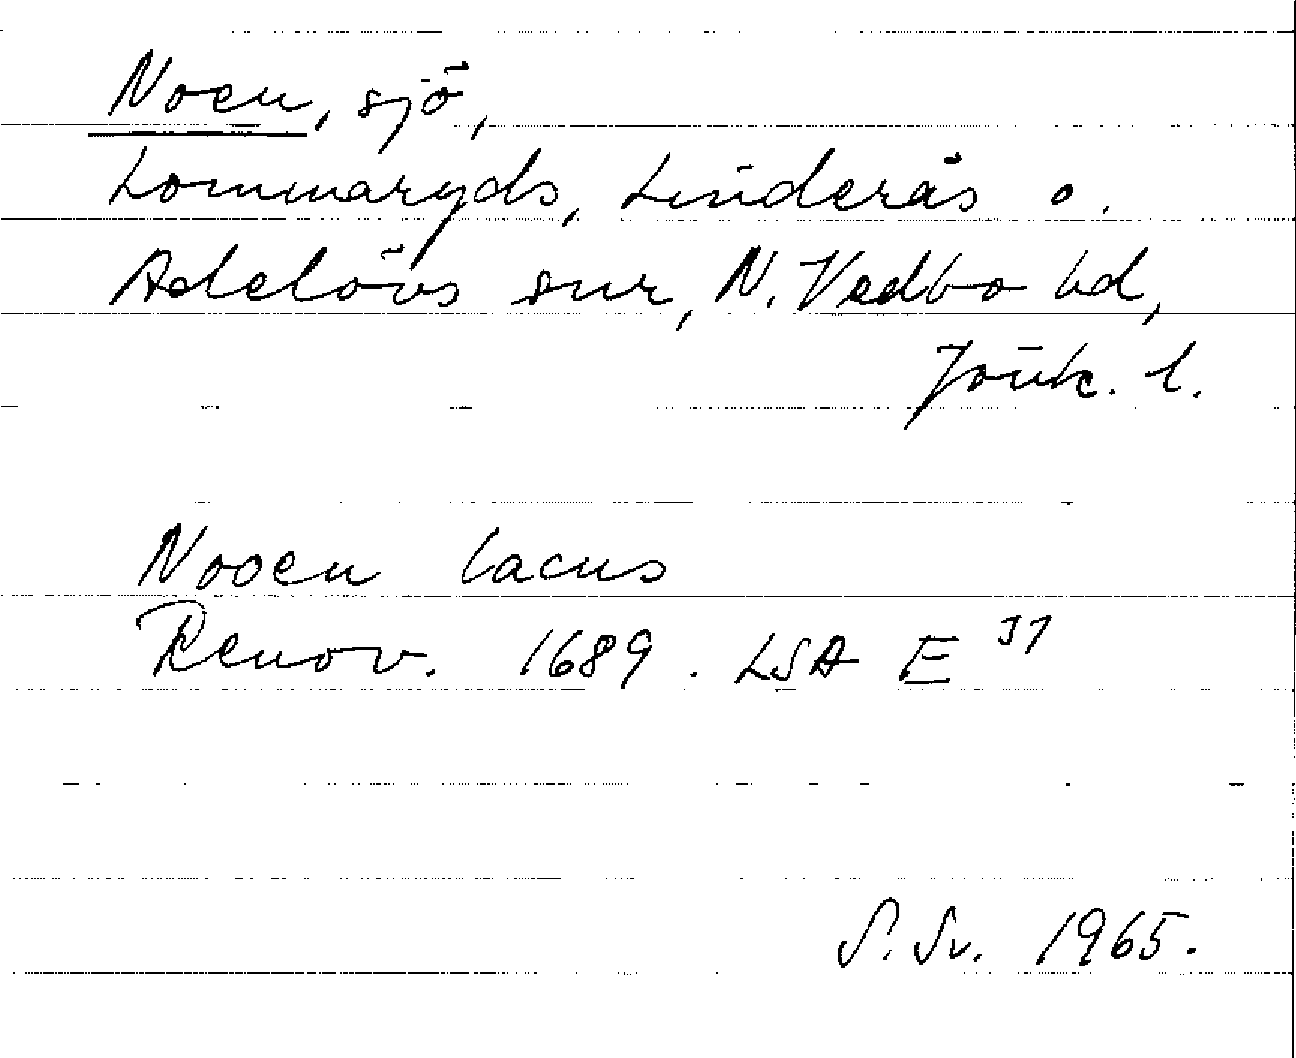 Noen, sjö,
Lommaryds, Linderås o.
Adelövs snr, N. Vedbo hd,
Jönk. l.
Nooen lacus
Renov. 1689. LSA E 37
S. Sv. 1965.